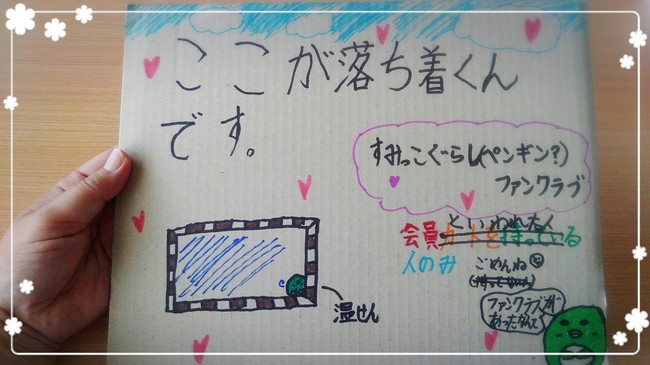 ここが落ち着くん
です。
すみっこぐらし(ペンギン?)
ファンクラブ
といわれた人
会員カードを持っている
人のみ
ごめんね
温せん
ファンクラブが
あったなんて